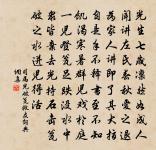 光生七歲凜然如成人
聞講左氏春秋愛之退
為家人講即了其大指
自是手不釋書至不知
飢渴寒暑群兒戲於庭
一兒登甕足跌沒水中
眾皆棄去光持石擊甕
破之水迸兒得活